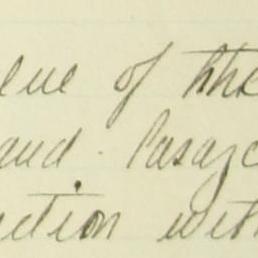 lue of the
and. Pasaze
ction with